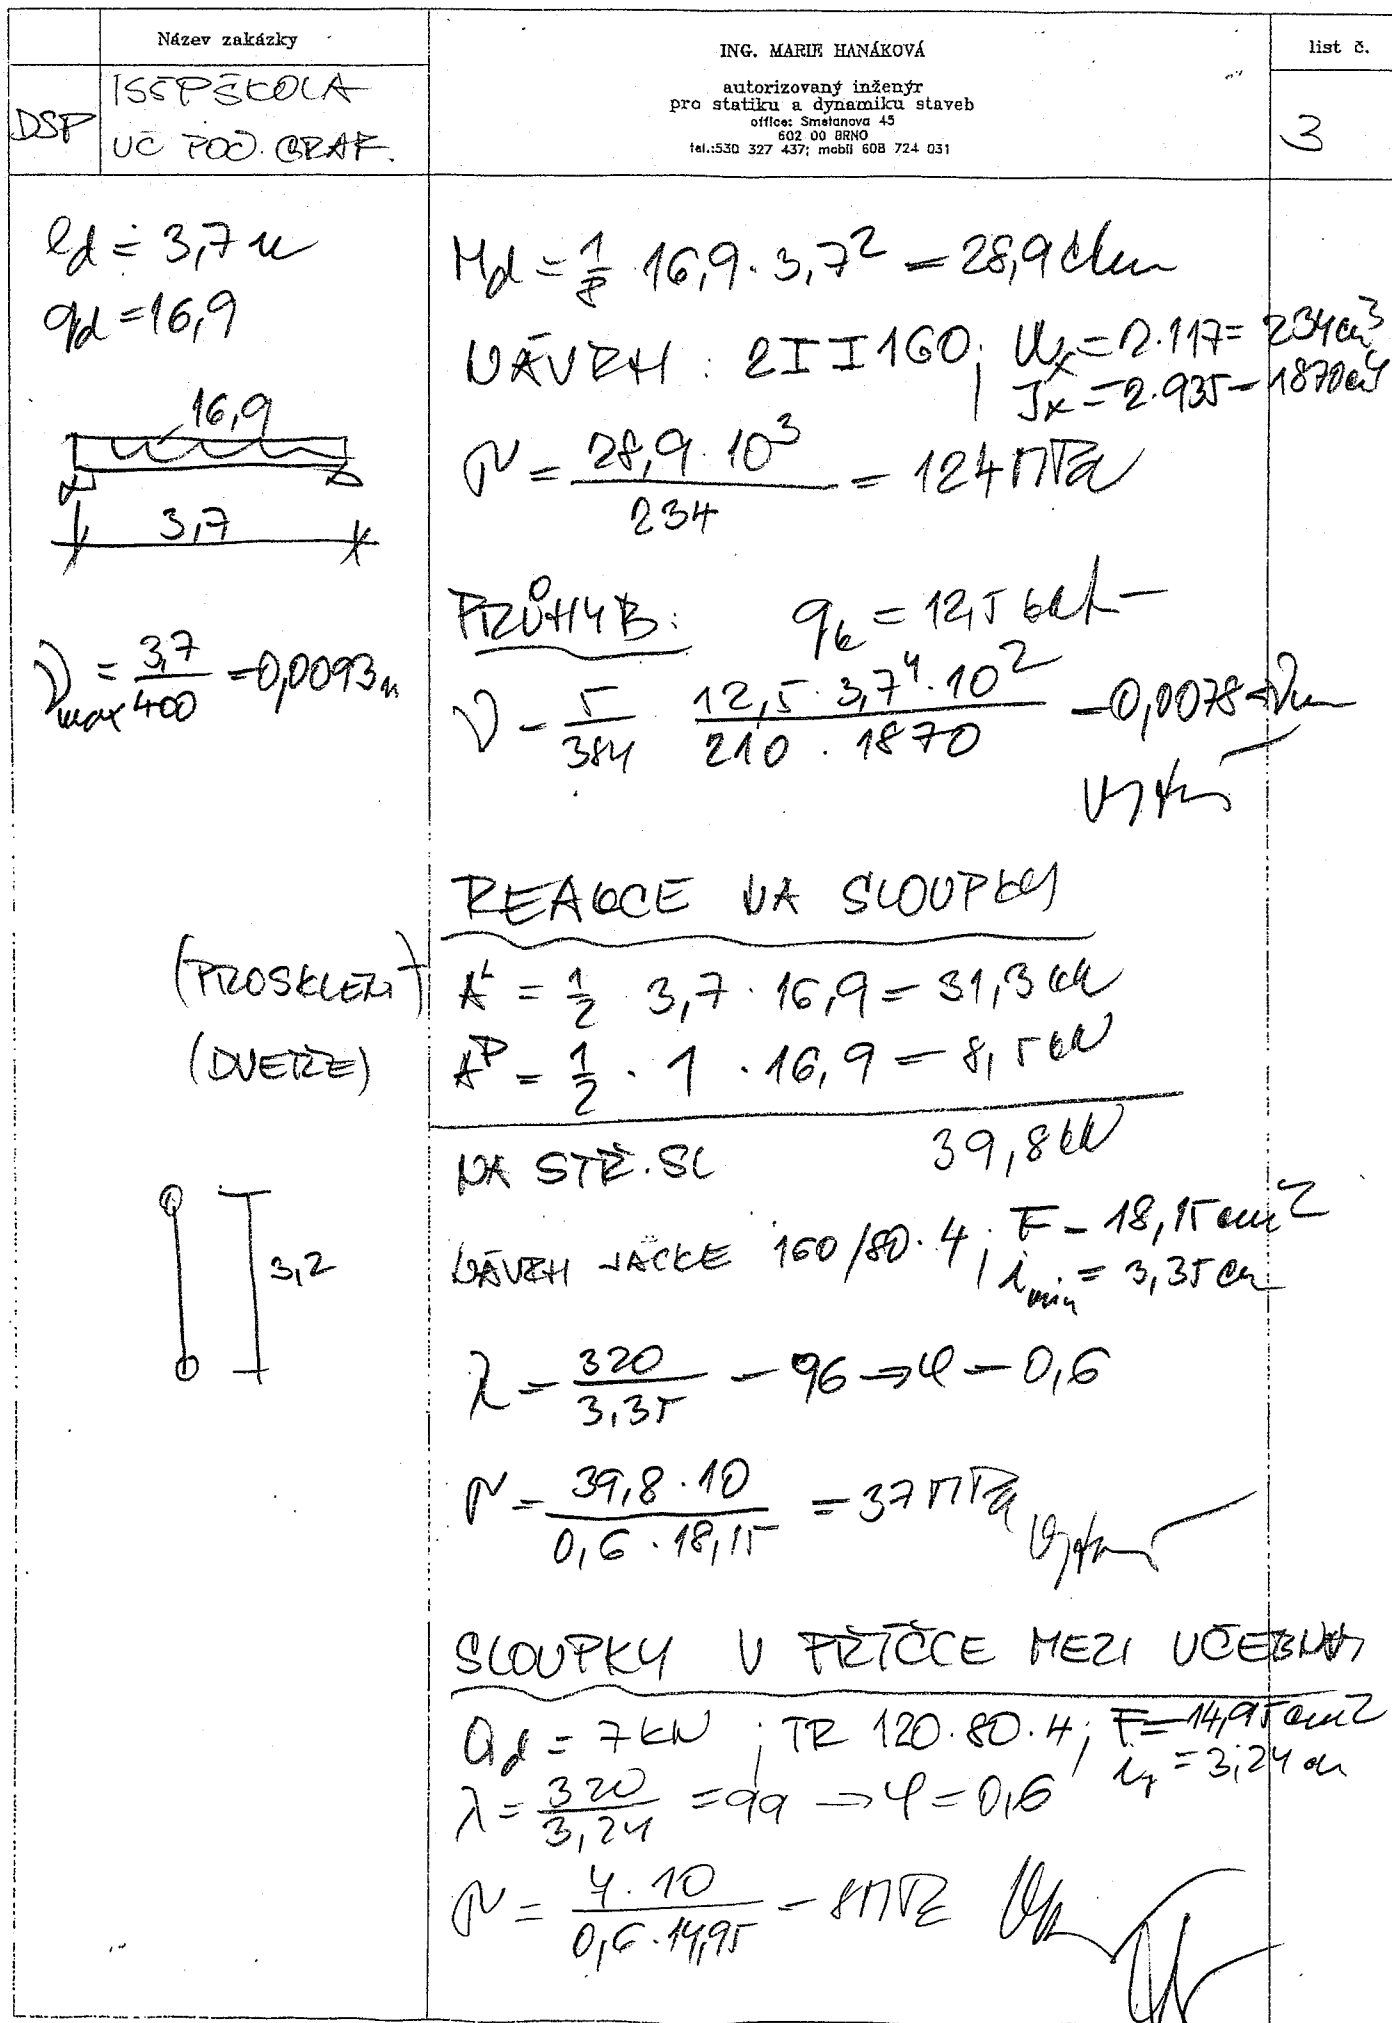 Název zakázky
DSP
ISŠP ŠKOLA
UČ POČ. GRAF.
ING. MARIE HANÁKOVÁ
autorizovaný inženýr
pro statiku a dynamiku staveb
office: Smetanova 45
602 00 BRNO
tel.:530 327 437; mobil 608 724 031
list č.
3
ld = 3,7 m
qd = 16,9
16,9
3,7
Md = 1/8 · 16,9 · 3,7² = 28,9 kNm
NÁVRH : 2 I I 160 ; Wx = 2·117 = 234 cm³
Jx = 2·935 = 1870 cm⁴
σ = 28,9 · 10³ / 234 = 124 MPa
PRŮHYB: qk = 12,5 kN/m
νmax = 3,7 / 400 = 0,0093 m
ν = 5/384 · 12,5 · 3,7⁴ · 10² / 210 · 1870 = 0,0078
REAKCE NA SLOUPKY
(PROSKLENÍ) A^L = 1/2 · 3,7 · 16,9 = 31,3 kN
(DVEŘE) A^P = 1/2 · 1 · 16,9 = 8,5 kN
NA STŘ. SL 39,8 kN
3,2
NÁVRH JÄCKE 160/80·4 ; F = 18,15 cm²
imin = 3,35 cm
λ = 320 / 3,35 = 96 ⇒ φ = 0,6
σ = 39,8 · 10 / 0,6 · 18,15 = 37 MPa
SLOUPKY V PŘÍČCE MEZI UČEBNAMI
Qd = 7 kN ; TR 120·80·4 ; F = 14,95 cm²
= 3,24 cm
λ = 320 / 3,24 = 99 ⇒ φ = 0,6
σ = 4 · 10 / 0,6 · 14,95 = 8 MPa